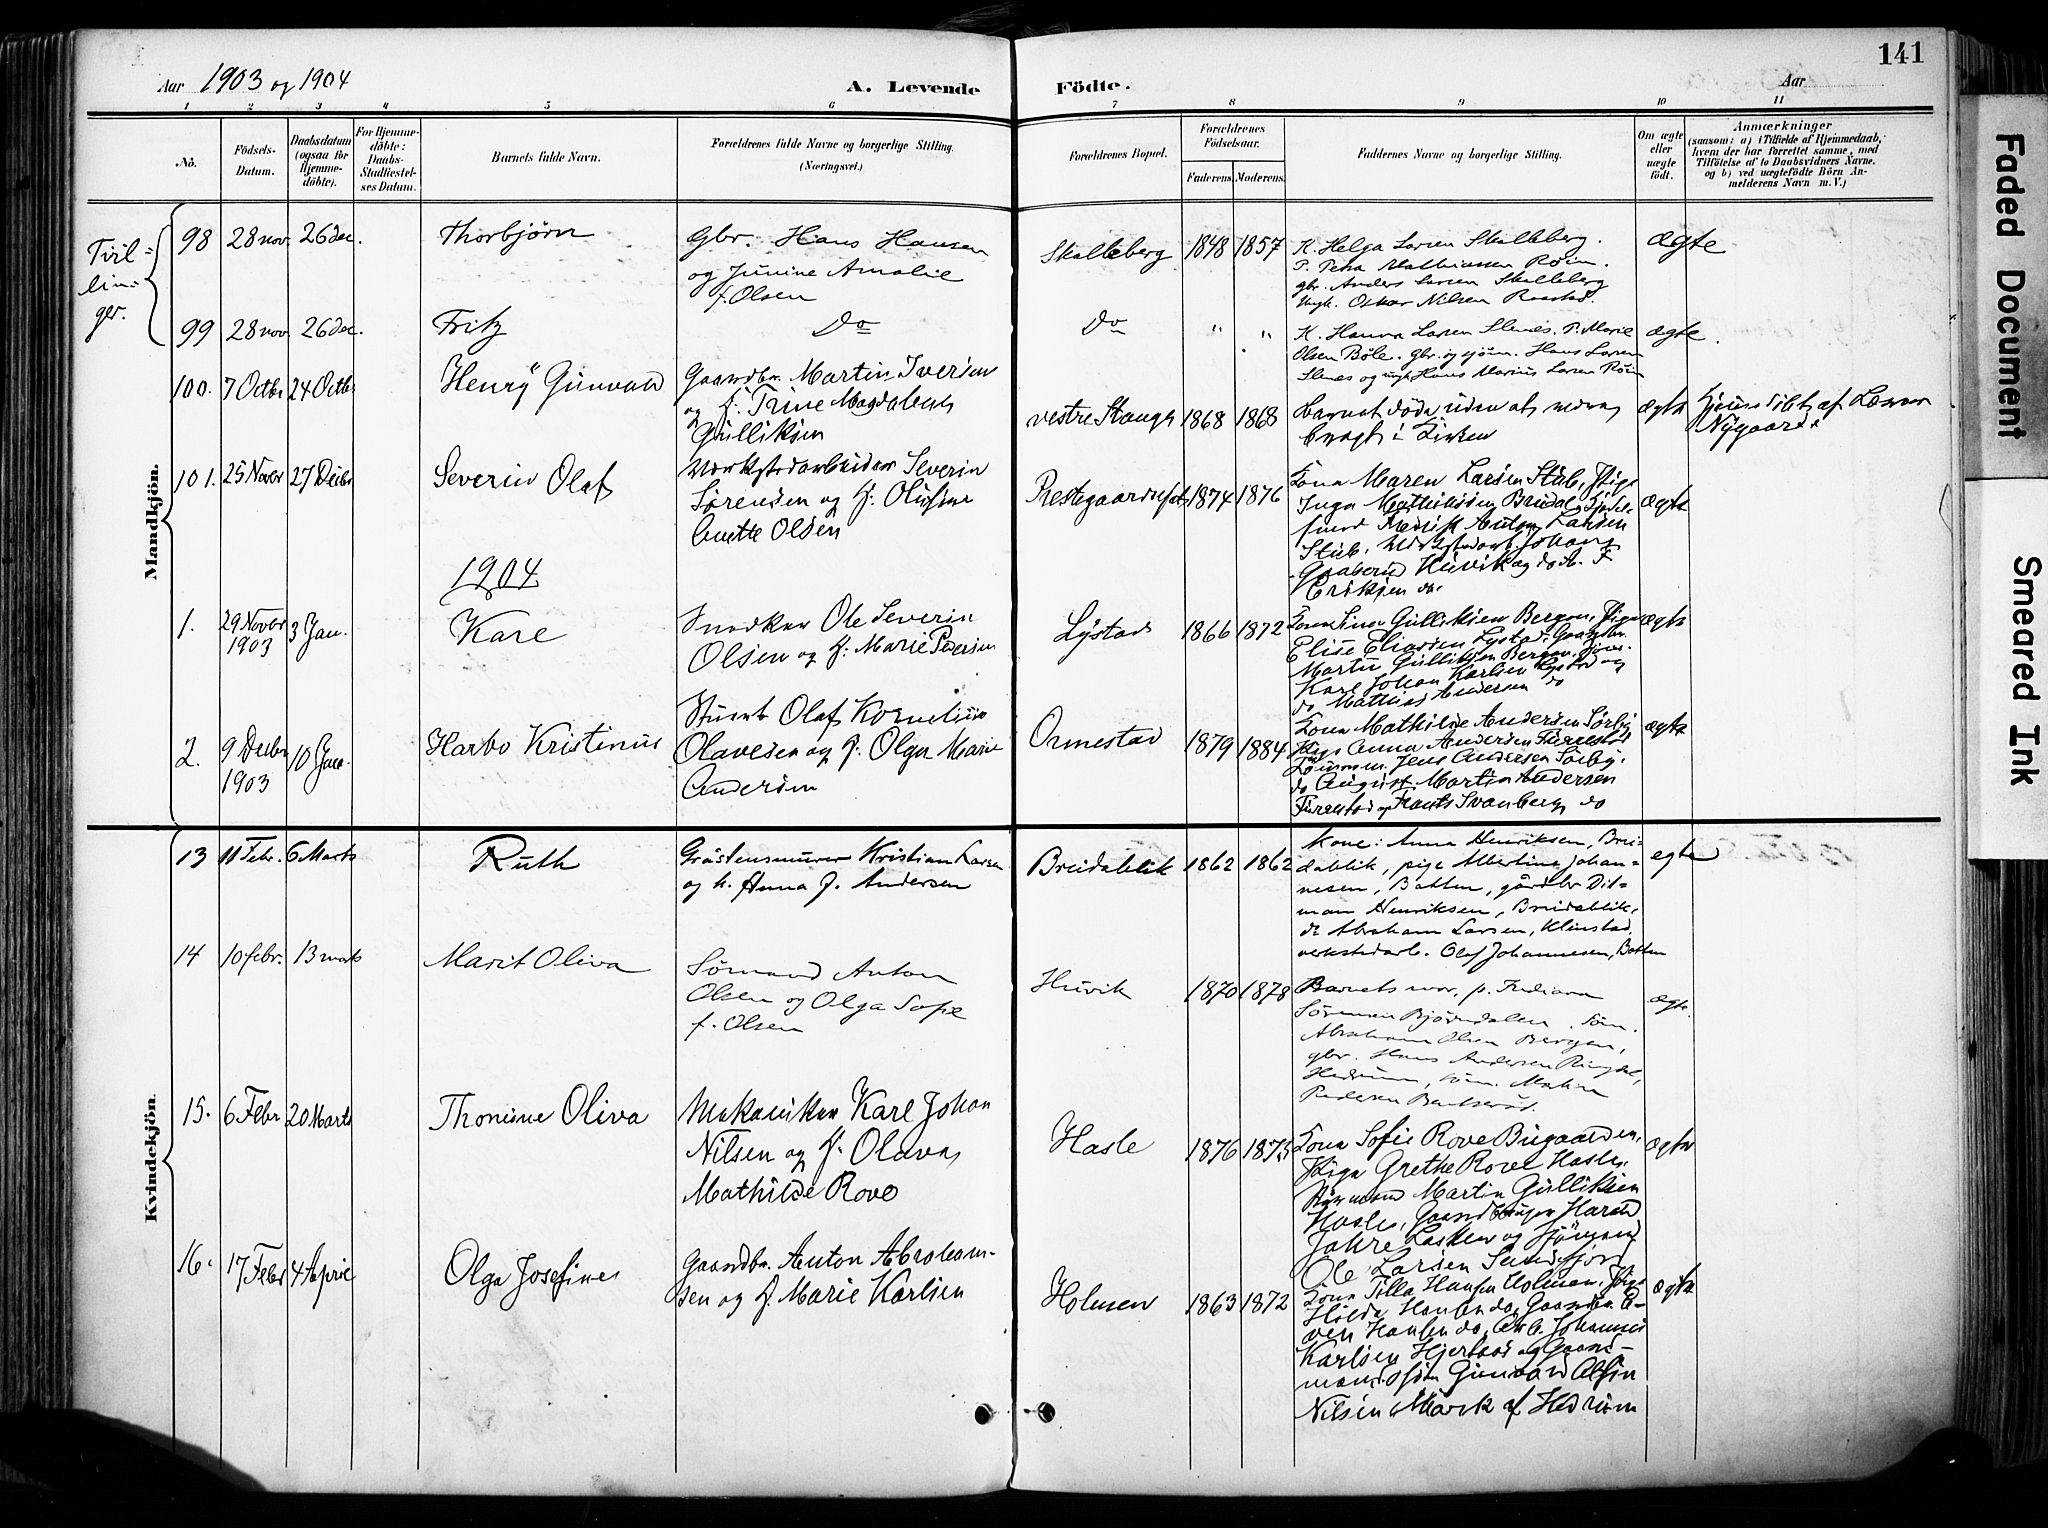 141
Aar 1903 og 1904
A. Levende Födte.
Aar
1 2 3 4 5 6 7 8 9 10 11
No.
Födsels-Datum.
Daabsdatum (ogsaa for Hjemme-döbte).
For Hjemme-döbte: Daabs-Stadfæstel-ses Datum.
Barnets fulde Navn.
Forældrenes fulde Navne og borgerlige Stilling. (Næringsvei.)
Forældrenes Bopæl.
Forældrenes Födselsaar.
Faderens. Moderens.
Faddernes Navne og borgerlige Stilling.
Om ægte eller uægte födt.
Anmærkninger
(saasom: a) i Tilfælde af Hjemmedaab, hvem der har forrettet samme, med Tilföielse af to Daabsvidners Navne. og b) ved uægtefödte Börn An-melderens Navn m. V.)
Tvil-
lin-
ger.
Mandkjön.
98 28 nov. 26 dec. Thorbjørn
Gbr. Hans Hansen
og Junine Amalie
f. Olsen
Skalleberg 1848 1857
K. Helga Larsen Skalleberg.
P. Petra Mathiassen Røim.
gbr. Anders Larsen Skalleberg
Ungk. Oskar Nilsen Raastad.
ægte
99 28 nov. 26 dec. Fritz
Do
Do " "
K. Hanna Larsen Slenes. P. Marie
Olsen Bøle. Gbr. og sjöm. Hans Larsen
Slenes og ungk. Hans Marius Larsen Röim
ægte.
100. 7 Octbr 24 Octbr Henry Gunvald
Gaardbr. Martin Iversen
og f: Trine Magdalene
Gulliksen
vestre Stange 1868 1868
barnet döde uden at være
bragt i Kirken
ægte
Hjemmedöbt af Lærer
Nygaard
101. 25 Novbr 27 Decbr Severin Olaf
Værkstedarbeider Severin
Sørensen og f: Olufine
Anette Olsen
Prestegaardspl. 1874 1876
Kona Maren Larsen Stub, Pige
Inga Mathisen Bredal, Sjöfar-
mand Fredrik Anton Larsen
Stub, Værkstedarb. Johan
Graaberg Huvik og do A. F
Eriksen do.
ægte
1904
1. 29 Novbr 1903 3 Jan. Kare
Snedker Ole Severin
Olsen og f: Marie Pedersen
Lystad 1866 1872
Kona Lina Gulliksen Bergan, Pige
Elise Eliassen Lystad, Gaardbr.
Martin Gulliksen Bergan,
Karl Johan Karlsen Lystad og
do Mathias Andersen do
ægte
2. 9 Decbr 1903 10 Jan. Harbo Kristinus
Stuert Olaf Kornelius
Olavesen og f: Olga Marie
Andersen
Ormestad 1879 1884
Kona Mathilde Andersen Sörby
Pige Anna Andersen Furrestad
Tömmerm. Jens Andersen Sörby,
do August Martin Andersen
Furrestad og Frants Svanberg do
ægte
Kvindekjön.
13 11 Febr. 6 Marts Ruth
Gråstensmurer Kristian Larsen
og h. Anna f. Andersen
Breidablik 1862 1862
Kone: Anna Henriksen, Brei-
dablik, pige Albertine Johan-
nesen, Batten, gårdbr Dit-
man Henriksen, Breidablik,
do Abraham Larsen, Klinestad,
verkstedarb. Olaf Johannesen, Batten
egte
14 10 febr. 13 mats Marit Oliva
Sömand Anton
Olsen og Olga Sofie
f. Olsen
Huvik 1870 1878
Barnets mor, p. Indiana
Sörensen Bjørndalen, Söm.
Abraham Olsen Bergan,
gbr. Hans Andersen Ringdal,
Hedrum, söm. Martin
Pedersen
ægte.
15. 6 Febr 20 Marts Thomine Oliva
Mekaniker Karl Johan
Nilsen og f: Olava
Mathilde Rove
Hasle 1876 1873
Kona Sofie Rove Bugaarden,
Pige Grethe Rove Hasle,
Styrmand Martin Gulliksen
Hasle, Gaardbruger Harald
Jahre Lasken og Sjömand
Ole Larsen Sandefjord
ægte
16. 17 Febr 4 April Olga Josefine
Gaardbr. Anton Abraham-
sen og f. Marie Karlsen
Holmen 1863 1872
Kona Tilla Hansen Holman, Pige
Hilda Hansen do, Gaardbr. E-
ven Hansen do, Arb. Johannes
Karlsen Hjertaas og Gaard-
mandssön Gunvald Alfin
Nilsen Mörk af Hedrum
ægte
Faded Document
Smeared Ink